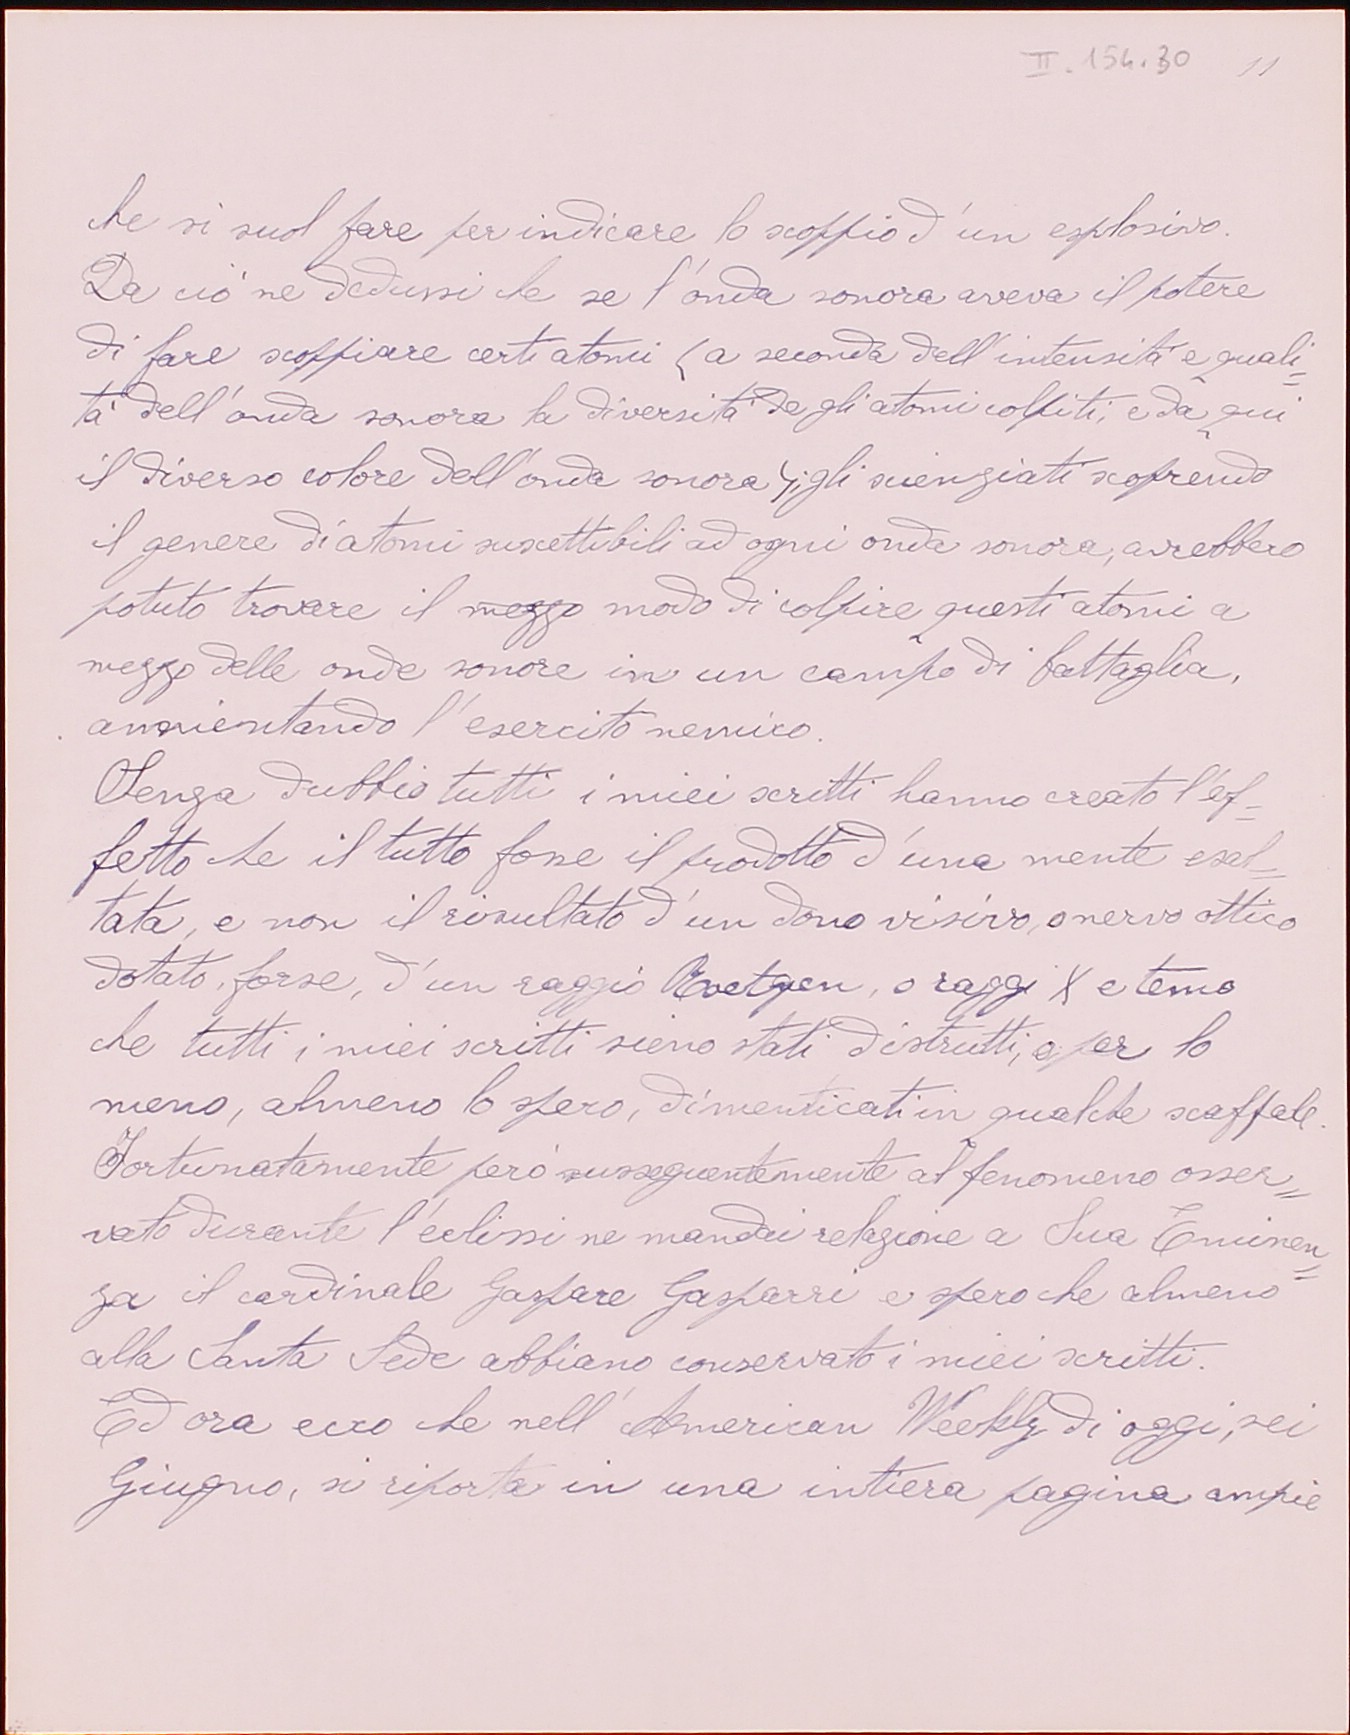 II. 154.30 11
che si suol fare per indicare lo scoppio d'un esplosivo.
Da ció ne dedussi che se l'onda sonora aveva il potere
di fare scoppiare certi atomi (a seconda dell'intensitá e quali=
tá dell'onda sonora la diversitá degli atomi colpiti, e da qui
il diverso colore dell'onda sonora); gli scienziati scoprendo
il genere di atomi suscettibili ad ogni onda sonora, avrebbero
potuto trovare il mezzo modo di colpire questi atomi a
mezzo delle onde sonore in un campo di battaglia,
annientando l'esercito nemico.
Senza dubbio tutti i miei scritti hanno creato l'ef=
fetto che il tutto fosse il prodotto d'una mente esal=
tata, e non il risultato d'un dono visivo, o nervo ottico
dotato, forse, d'un raggio Roetgen, o raggi X e temo
che tutti i miei scritti sieno stati distrutti, o per lo
meno, almeno lo spero, dimenticati in qualche scaffale.
Fortunatamente peró susseguentemente al fenomeno osser=
vato durante l'eclissi ne mandai relazione a Sua Eminen=
za il cardinale Gaspare Gasparri e spero che almeno
alla Santa Sede abbiano conservato i miei scritti.
Ed ora ecco che nell'American Weekly di oggi, sei
Giugno, si riporta in una intiera pagina ampie